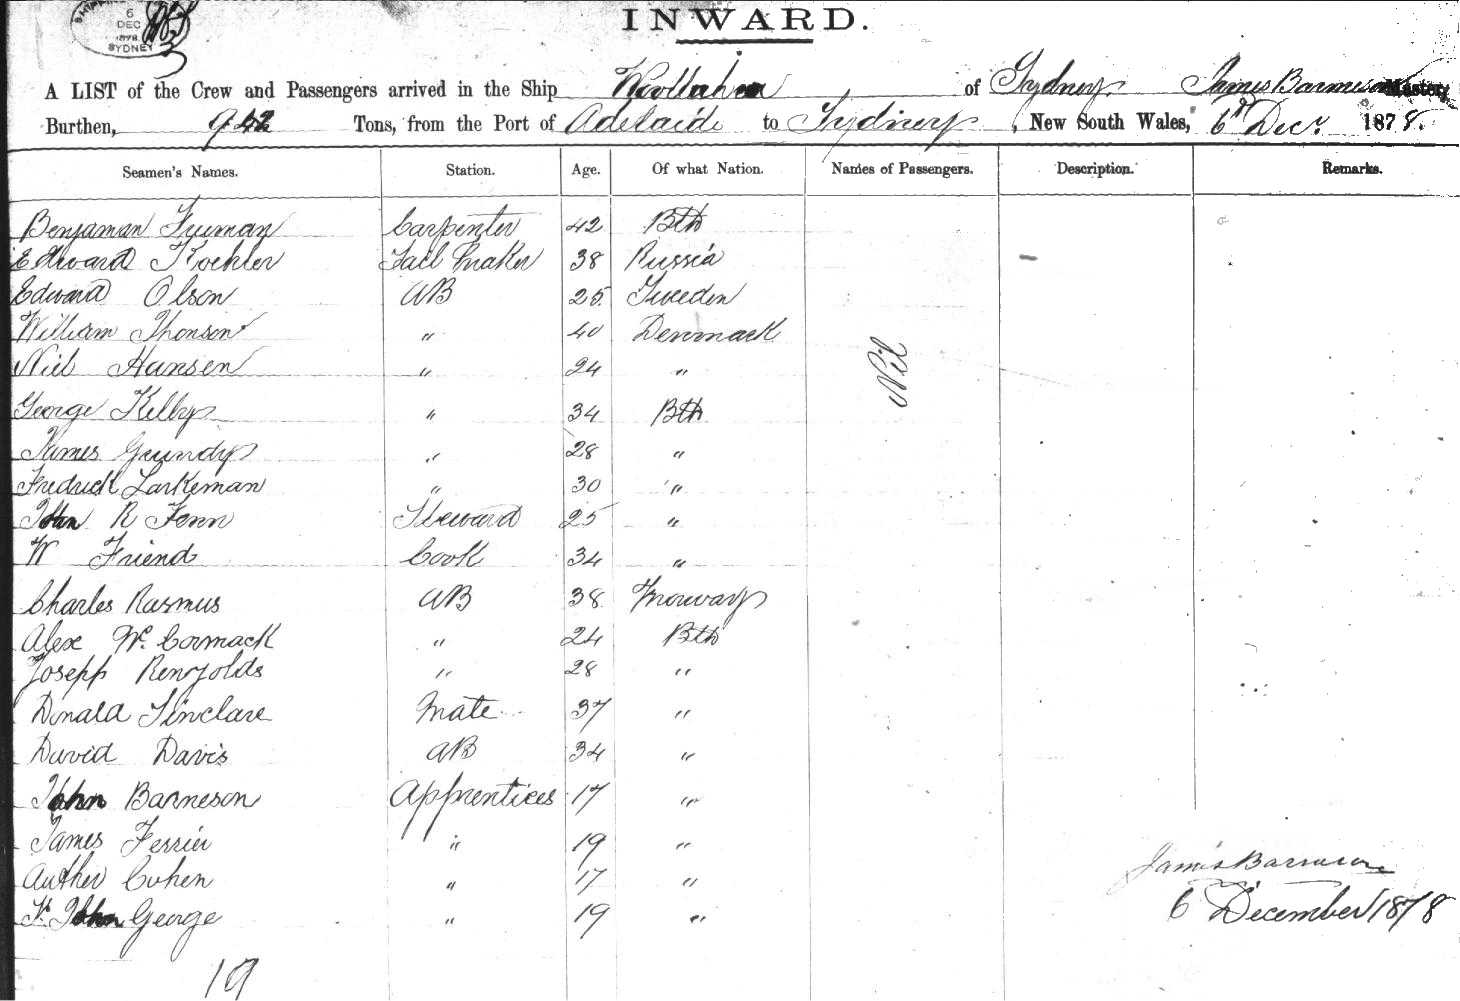 6
DEC
1878
SYDNEY
INWARD.
A LIST of the Crew and Passengers arrived in the Ship Woollahra of Sydney. James Barneson Master,
Burthen, 942 Tons, from the Port of Adelaide to Sydney, New South Wales, 6th Decr. 1878.
Seamen's Names. Station. Age. Of what Nation. Names of Passengers. Description. Remarks.
Benjaman Fruman Carpenter 42 Bth
Edward Koehler Sail Maker 38 Russia
Edward Olson AB 25 Sweeden
William Thonson " 40 Denmack
Niel Hansen " 24 "
Nil
George Kelby " 34 Bth
James Grundy " 28 "
Fredrick Larkeman " 30 "
John R Fenn Steward 25 "
W Friend Cook 34 "
Charles Rasmus AB 38 Norway
Alex Mc. Cormack " 24 Bth
Josepp Renyolds " 28 "
Donald Sinclare Mate 37 "
David Davis AB 34 "
John Barneson Apprentices 17 "
James Ferrier " 19 "
Auther Cohen " 17 "
St. John George " 19 "
James Barneson
6 December 1878
19